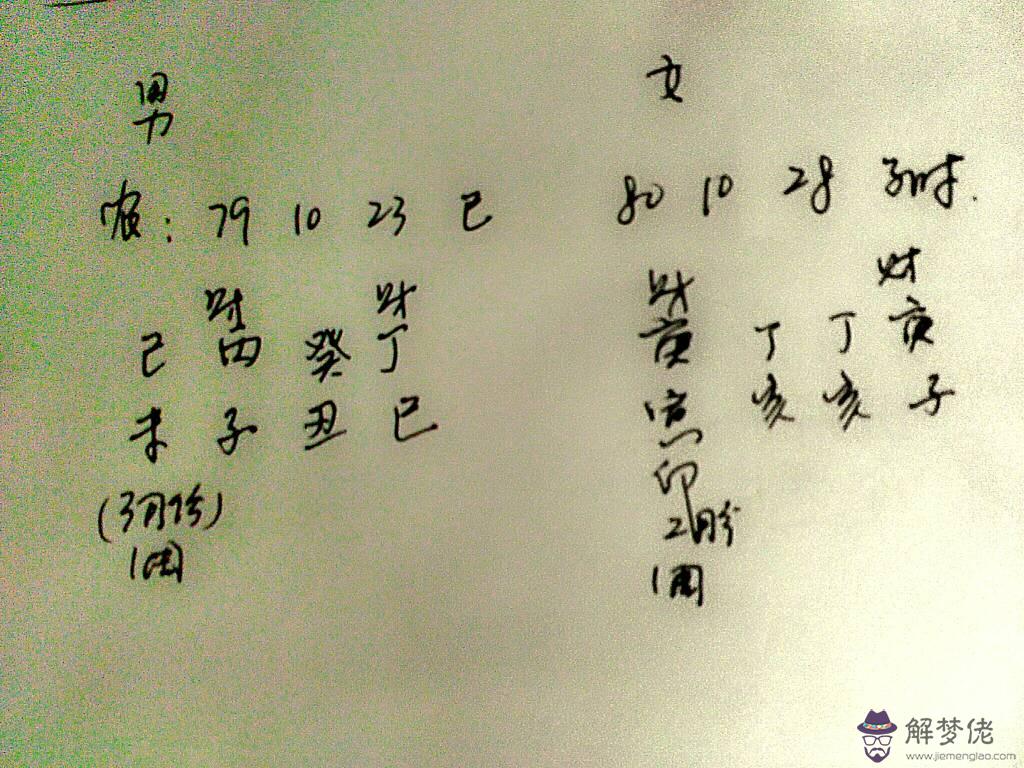 男
农: 79 10 23 巳
财 财
己 丙 癸 丁
未 子 丑 巳
(3月份)
1周
女
80 10 28 子时.
财 财
庚 丁 丁 庚
亥 亥 子
印
2月份
1周
解梦佬
www.jiemenglao.com